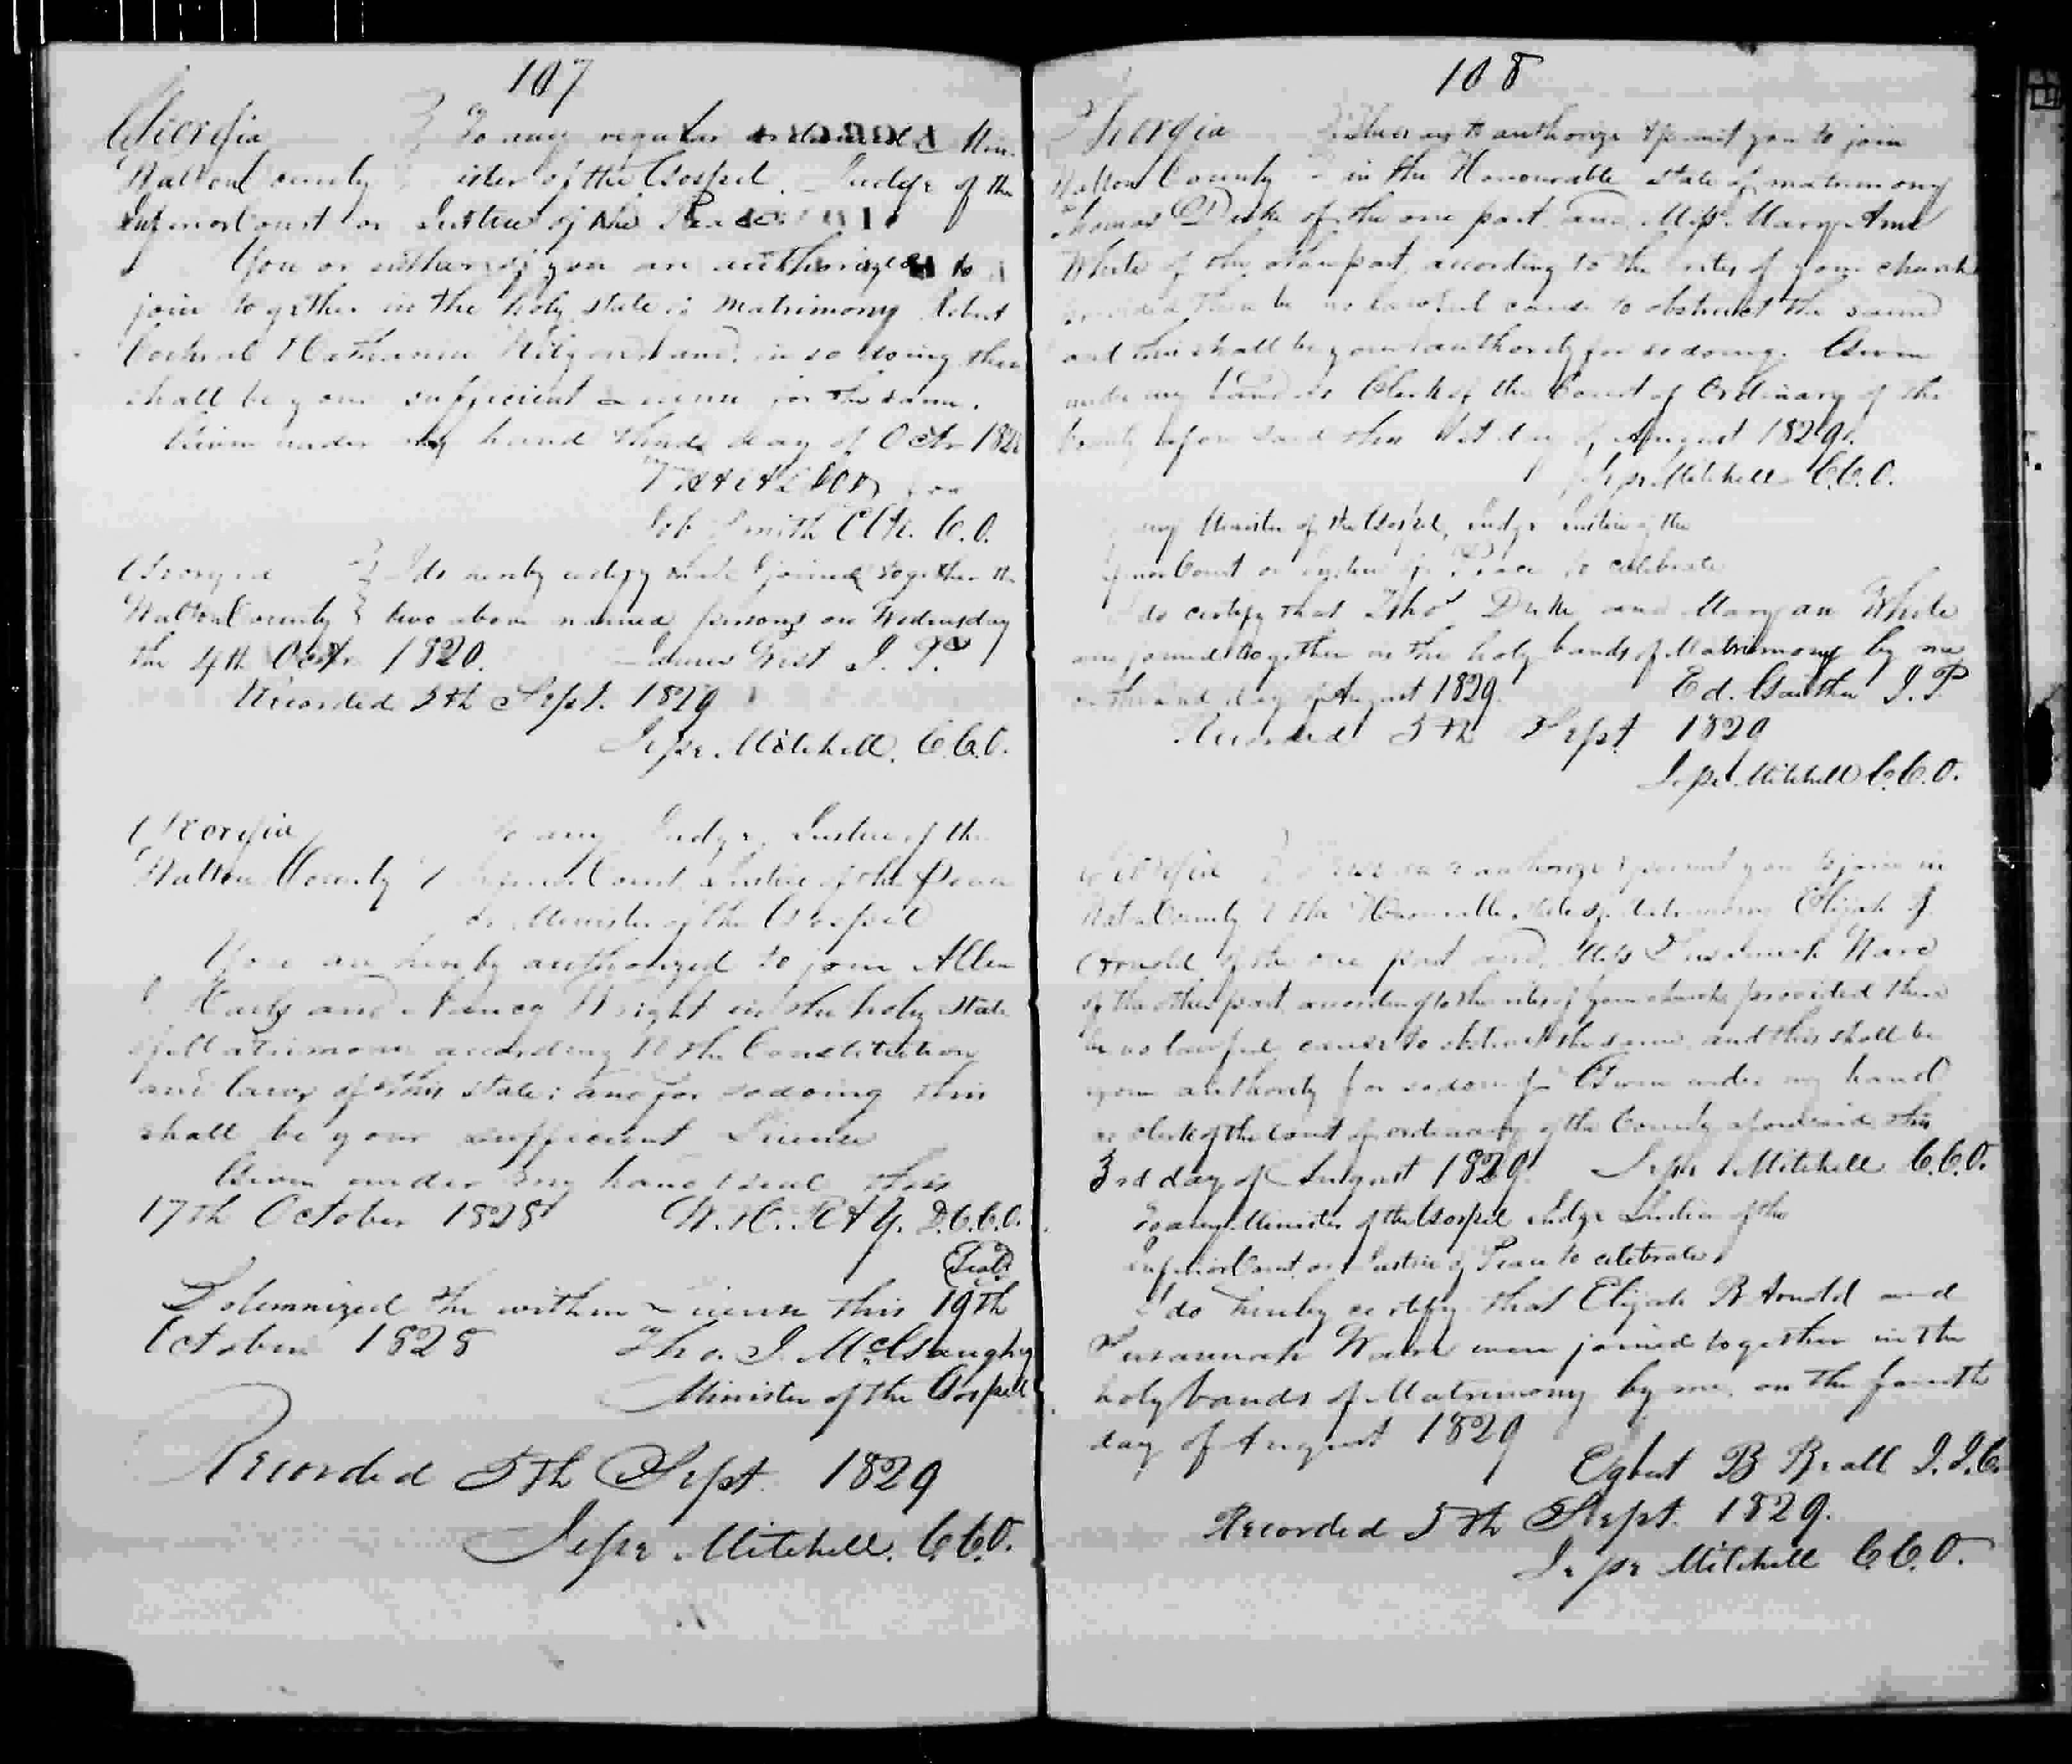 107
Georgia } To any regular ordained Min-
Walton County } ister of the Gospel. Judge of the
Inferior Court or Justice of the Peace
You or either of you are authorized to
join together in the holy state of matrimony Robert
and in so doing this
shall be your sufficient License for the same.
Given under my hand day of Octr 182
for
Smith Clk. C.O.
Georgia } I do hereby certify that I joined together the
Walton County } two above named persons on Wednesday
the 4th Octr 1820. James J. P.
Recorded 5th Sept. 1829
Jesse Mitchell. C.C.O.
Georgia } To any Judge, Justice of the
Walton County } Inferior Court, Justice of the Peace
or Minister of the Gospel
You are hereby authorized to join Allen
and Nancy Wright in the holy state
of Matrimony according to the Constitution
and laws of this state; and for so doing this
shall be your sufficient License
Given under my hand & seal this
17th October 1828 D.C.C.O.
Seal
Solemnized the within License this 19th
October 1828 Tho. J. McGaughy
Minister of the Gospel
Recorded 5th Sept. 1829
Jesse Mitchell. C.C.O.
108
Georgia These are to authorize & permit you to join
Walton County in the Honourable state of matrimony
Thomas Duke of the one part and Miss Mary Ann
White of the other part, according to the rites of your church
provided there be no lawful cause to obstruct the same
and this shall be your authority for so doing. Given
under my hand as Clerk of the Court of Ordinary of the
County aforesaid this 1st day of August 1829.
Jesse Mitchell C.C.O.
any Minister of the Gospel, Judge Justice of the
Inferior Court or Justice of Peace to celebrate
do certify that Thos Duke and Mary an White
were joined together in the holy bands of Matrimony by me
on the 2nd day of August 1829. Ed. J. P
Recorded 5th Sept 1829
Jesse Mitchell C.C.O.
Georgia } These are to authorize & permit you to join in
County } the Honourable state of Matrimony Elijah
Arnold of the one part and Miss Susannah Ware
of the other part according to the rites of your church provided there
be no lawful cause to obstruct the same and this shall be
your authority for so doing Given under my hand
as clerk of the court of ordinary of the County aforesaid this
3rd day of August 1829. Jesse Mitchell C.C.O.
To any Minister of the Gospel Judge Justice of the
Inferior Court or Justice of Peace to celebrate
I do hereby certify that Elijah B Arnold and
Susannah Ware were joined together in the
holy bands of Matrimony by me on the fourth
day of August 1829
Egbert B Beall J.I.C.
Recorded 5th Sept. 1829.
Jesse Mitchell C.C.O.